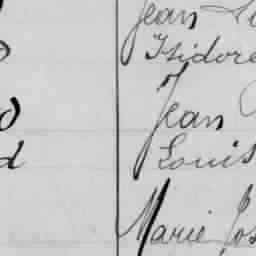 Jean
Isidore
Jean
d Louis
Marie Jos